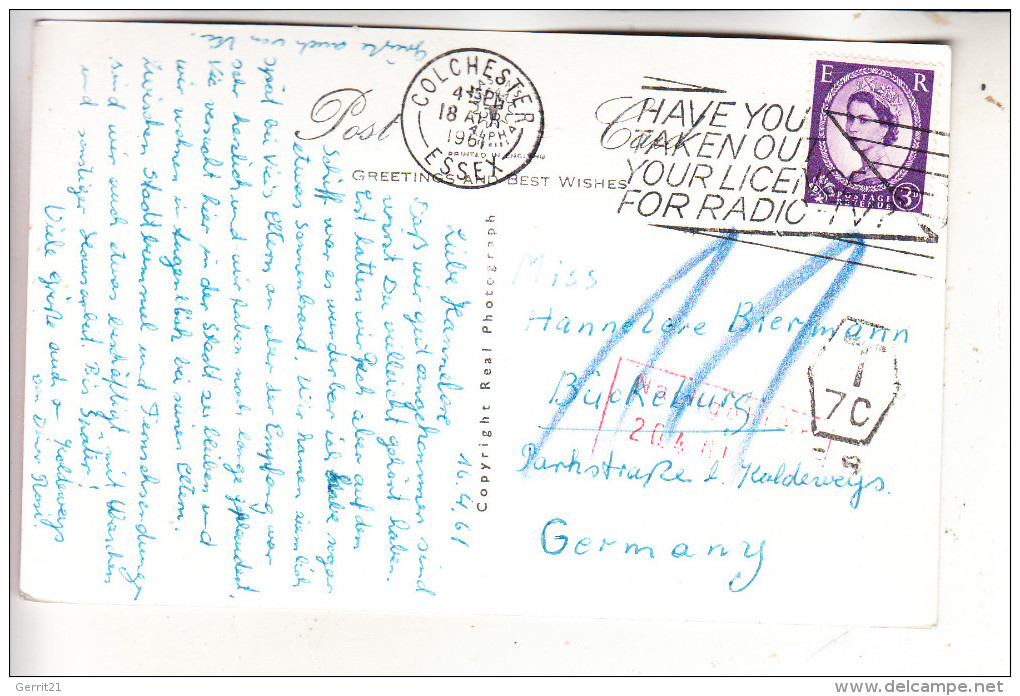 Post Card
PRINTED IN ENGLAND
GREETINGS AND BEST WISHES
COLCHESTER
ESSEX
18 APR
1961
HAVE YOU
TAKEN OUT
YOUR LICENCE
FOR RADIO-TV?
E R
POSTAGE
REVENUE
3D
Miss
Hannelore Biermann
Bückeburg
Parkstraße b. Koldeweys.
Germany
T
7C
20.4.61
Copyright Real Photograph
16.4.61
Liebe Hannelore
Daß wir gut angekommen sind
wirst Du vielleicht gehört haben.
Erst hatten wir Pech aber auf dem
Schiff war es wunderbar ich habe sogar
etwas Sonnenbrand. Wir kamen ziemlich
spät bei Vic's Eltern an aber der Empfang war
sehr herzlich und wir haben noch lange geplaudert.
Vic versucht hier in der Stadt zu bleiben und
wir wohnen im Augenblick bei seinen Eltern.
zwischen Stadtbummel und Fernsehsendungen
sind wir auch etwas beschäftigt mit Waschen
und sonstiger Hausarbeit. Bis Später!
Viele Grüße auch an Koldeweys
von Deiner Rosi!
Grüße auch von Vic.
Gerrit21
www.delcampe.net